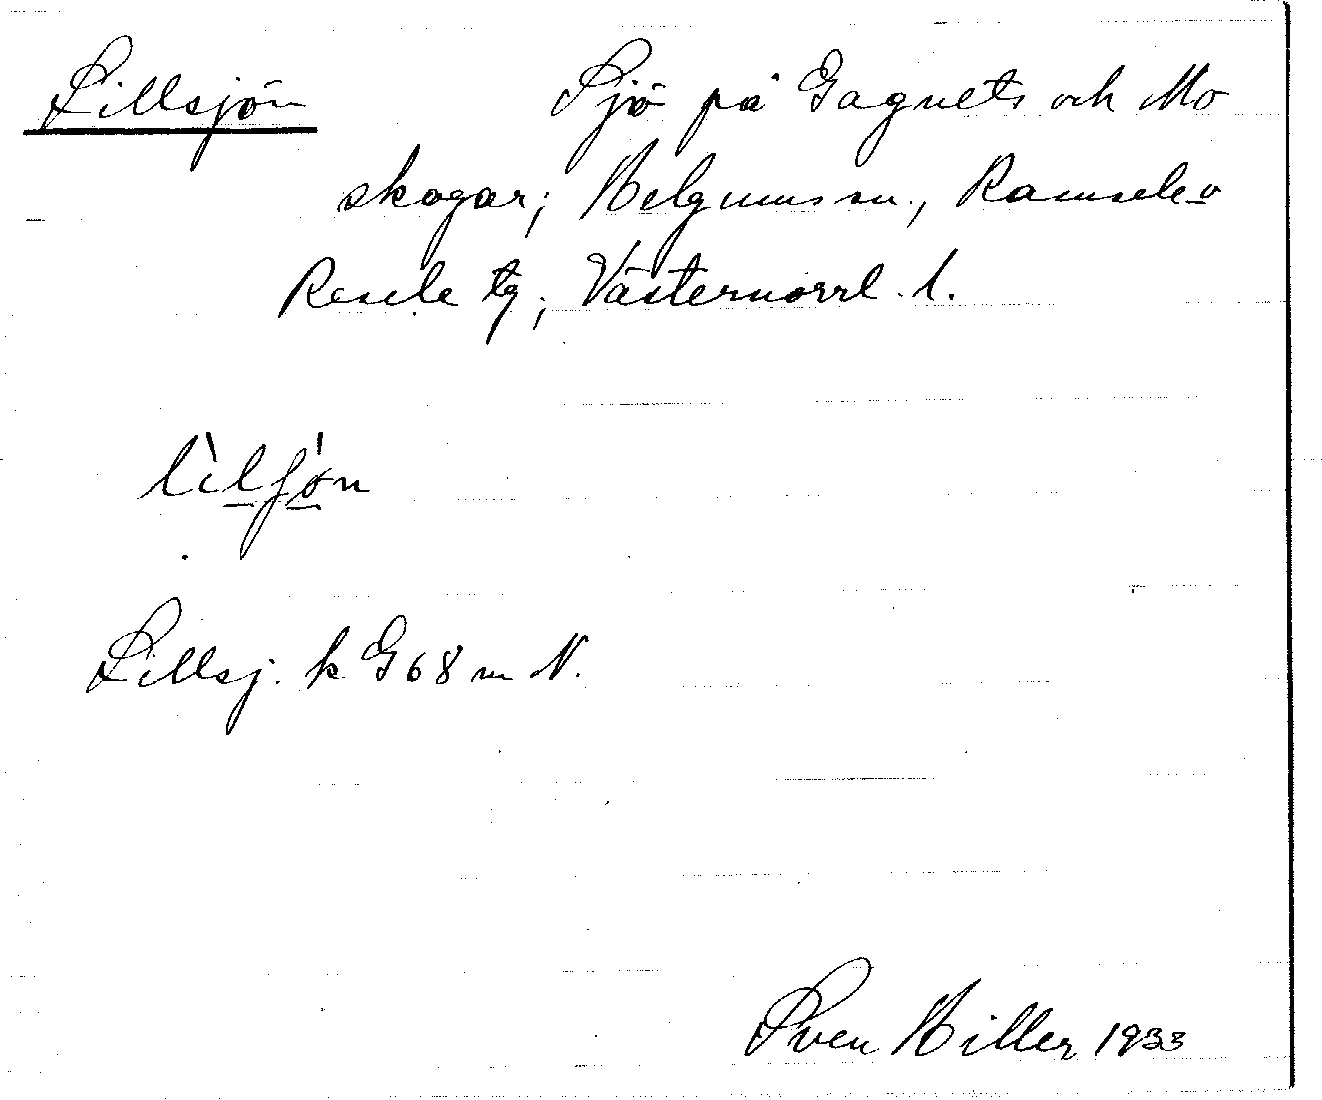 Lillsjön Sjö på Gagnets och Mo
skogar; Helgums sn., Ramsele o
Resele tg; Västernorrl. l.
Lillsj. k G 68 m N.
Sven Hiller 1933